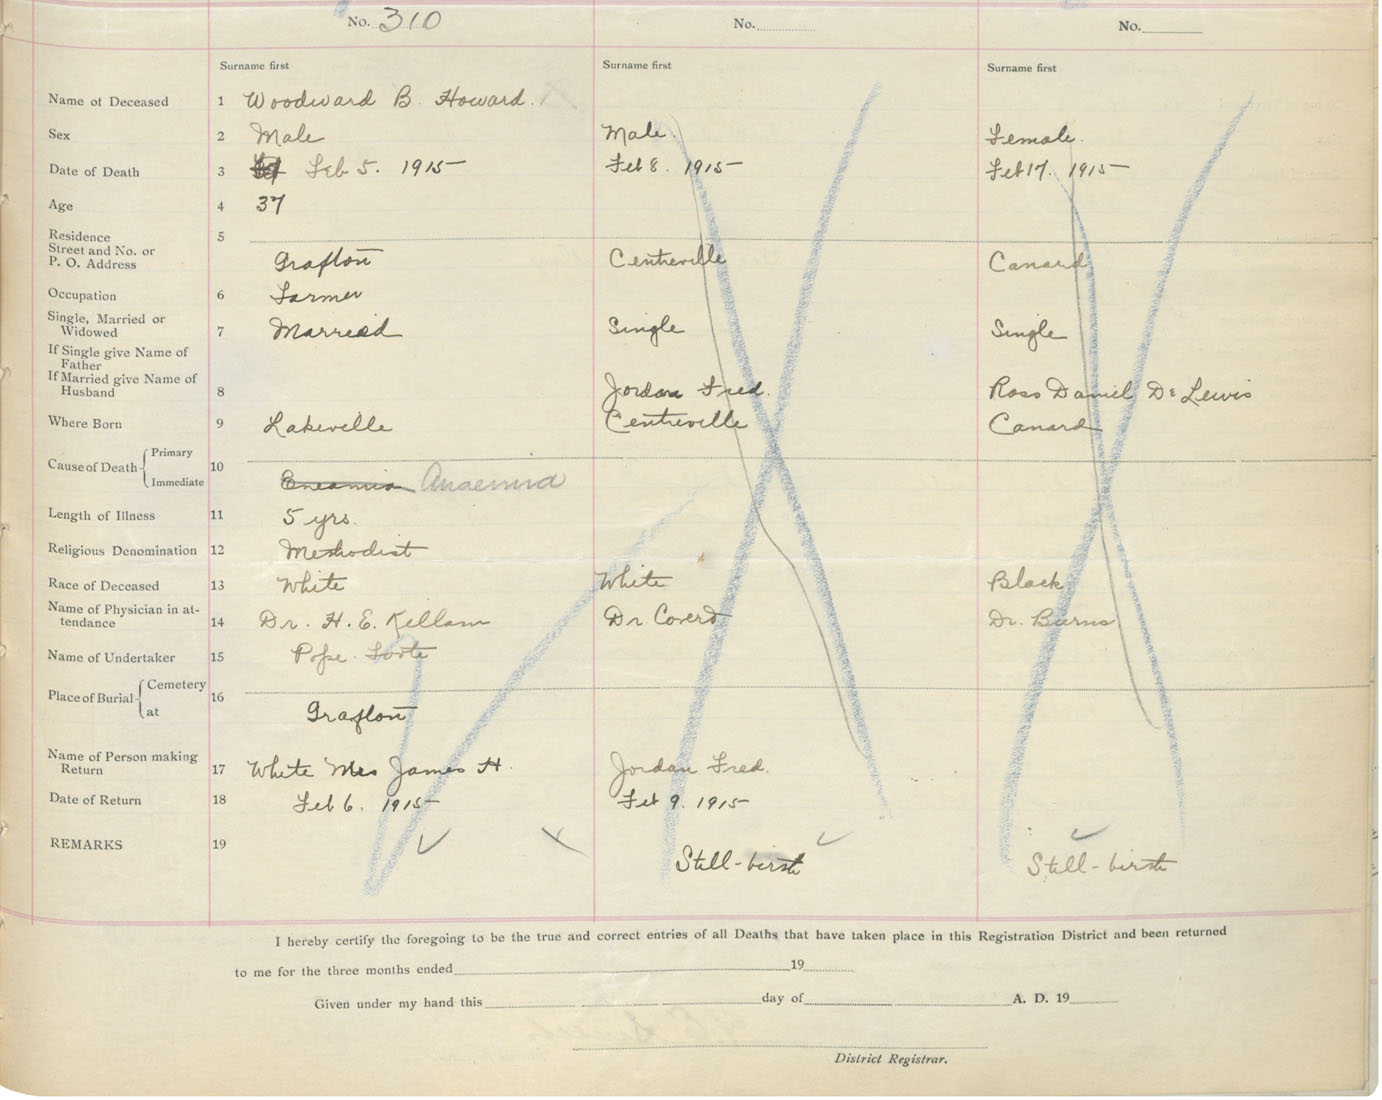 No. 310 No. No.
Surname first Surname first Surname first
Name of Deceased 1 Woodward B. Howard.
Sex 2 Male Male Female.
Date of Death 3 Feb 5. 1915 Feb 8. 1915 Feb 17. 1915
Age 4 37
Residence 5
Street and No. or
P. O. Address Grafton Centreville Canard
Occupation 6 Farmer
Single, Married or
Widowed 7 Married Single Single
If Single give Name of
Father
If Married give Name of
Husband 8 Jordan Fred. Ross Daniel De Lewis
Where Born 9 Lakeville Centreville Canard
Cause of Death Primary 10
Immediate Eneamia Anaemia
Length of Illness 11 5 yrs.
Religious Denomination 12 Methodist
Race of Deceased 13 White White Black
Name of Physician in at-
tendance 14 Dr. H. E. Kellam Dr Covert Dr. Burns
Name of Undertaker 15 Pope Foote
Place of Burial Cemetery 16
at Grafton
Name of Person making
Return 17 White Mrs James H. Jordan Fred.
Date of Return 18 Feb 6. 1915 Feb 9. 1915
REMARKS 19 Still-birth Still-birth
I hereby certify the foregoing to be the true and correct entries of all Deaths that have taken place in this Registration District and been returned
to me for the three months ended 19
Given under my hand this day of A. D. 19
District Registrar.